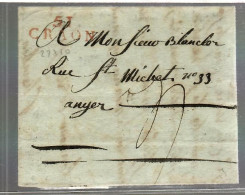 51
CRAON
A Monsieur Blanchor
Rue St. Michel n° 33
anger